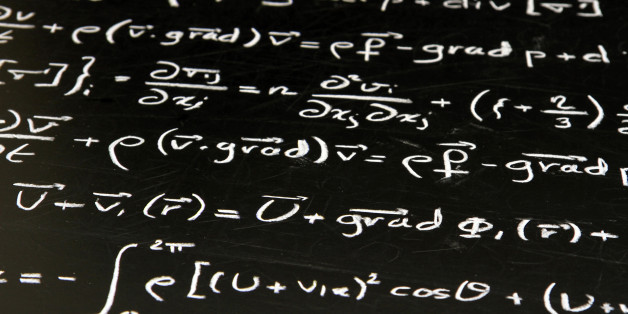 ρ + div [τ⃗]
∂v/∂t + ρ(v⃗·grad⃗)v⃗ = ρf⃗ - grad p + d
[τ⃗]}ᵢ = ∂τij/∂xj = n ∂²vᵢ/∂xj∂xj + (ξ + η/3)
∂v⃗/∂t + ρ(v⃗·grad⃗)v⃗ = ρf⃗ - grad⃗ p
U⃗ + v⃗₁(r⃗) = U⃗ + grad⃗ Φ₁(r⃗) +
= - ∫₀^2π ρ[(U + v₁ₓ)² cosθ + (U + v